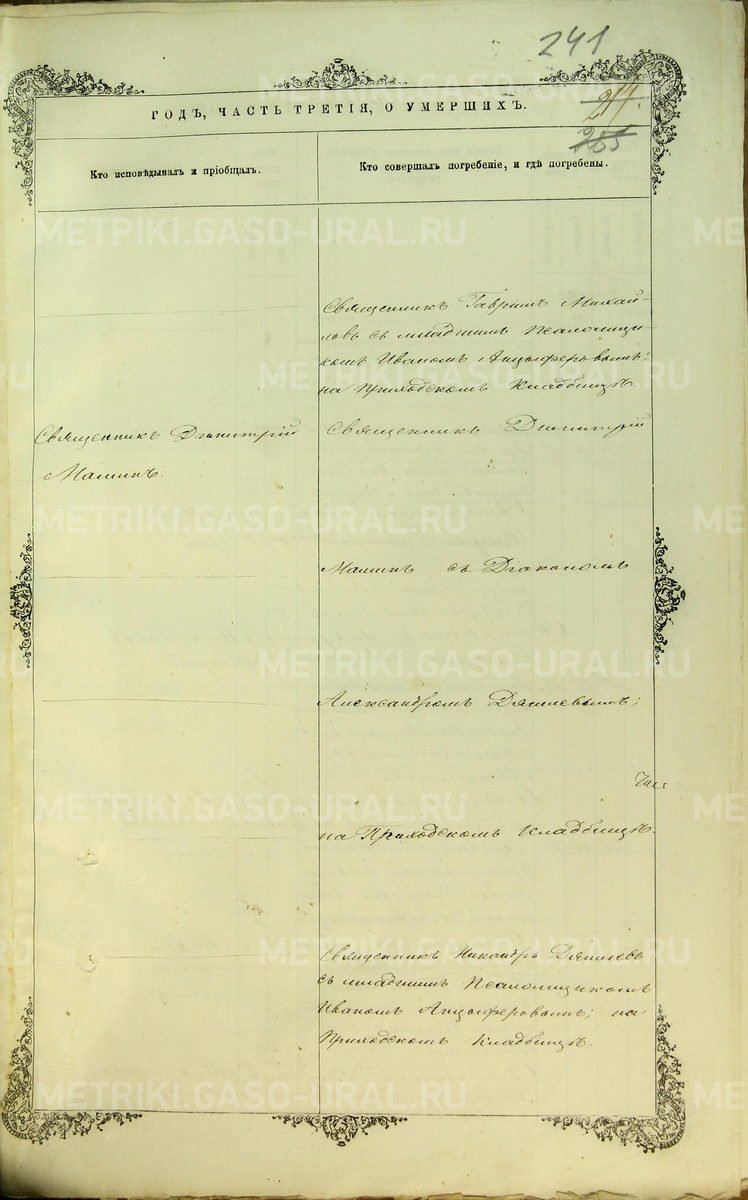 241
217.
285
ГОДЪ, ЧАСТЬ ТРЕТІЯ, О УМЕРШИХЪ.
Кто исповѣдывалъ и пріобщалъ.
Кто совершалъ погребеніе, и гдѣ погребены.
Священникъ Гавриилъ Михай-
ловъ съ младшимъ Псаломщи-
комъ Иваномъ Анцыферовымъ;
на Приходскомъ Кладбищѣ.
Священникъ Димитрій
Маминъ.
Священникъ Димитрій
Маминъ съ Діакономъ
Александромъ Дягилевымъ;
на Приходскомъ Кладбищѣ.
Священникъ Никандръ Дягилевъ
съ младшимъ Псаломщикомъ
Иваномъ Анцыферовымъ; на
Приходскомъ Кладбищѣ.
METRIKI.GASO-URAL.RU